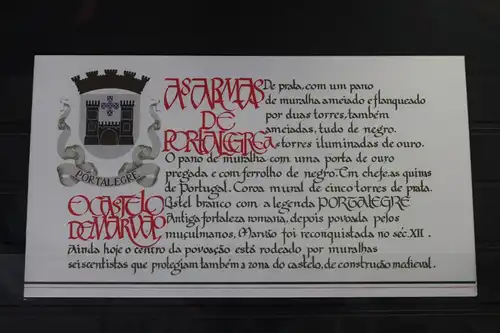 PORTALEGRE
AS ARMAS
DE
PORTALEGRE
De prata, com um pano
de muralha ameiado e flanqueado
por duas torres, também
ameiadas, tudo de negro.
As torres iluminadas de ouro.
O pano de muralha com uma porta de ouro
pregada e com ferrolho de negro. Em chefe, as quinas
de Portugal. Coroa mural de cinco torres de prata.
Listel branco com a legenda PORTALEGRE
O CASTELO
DE MARVÃO
Antiga fortaleza romana, depois povoada pelos
muçulmanos, Marvão foi reconquistada no séc. XII.
Ainda hoje o centro da povoação está rodeado por muralhas
seiscentistas que protegiam também a zona do castelo, de construção medieval.